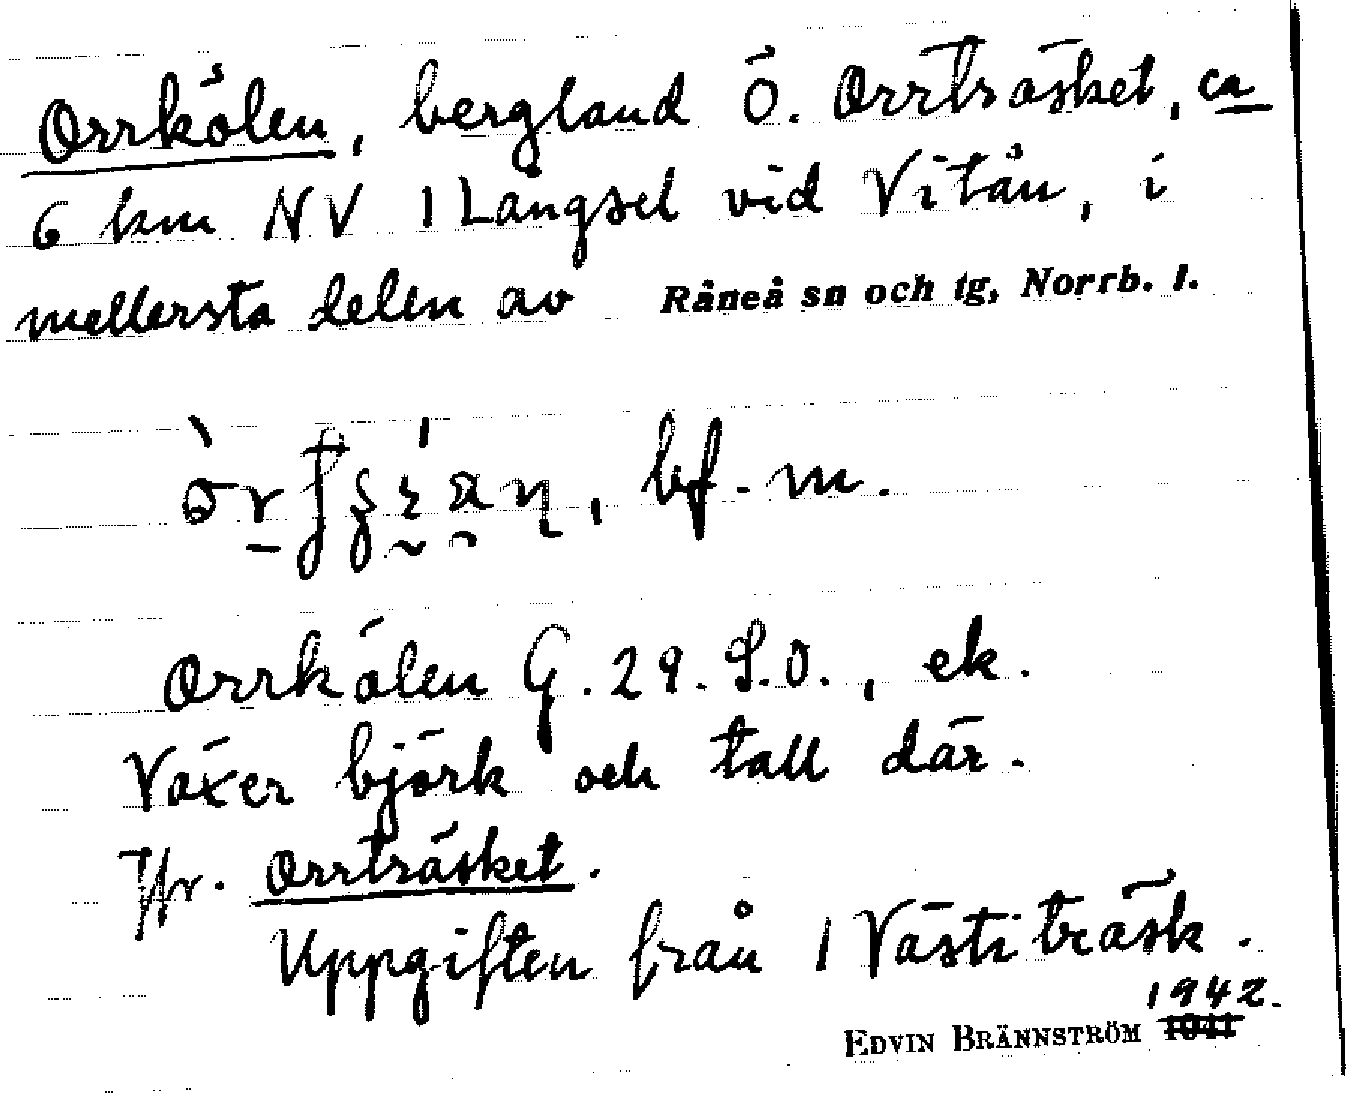 Orrkölen, bergland Ö. Orrträsket, ca
6 km NV 1 Långsel vid Vitån, i
mellersta delen av Råneå sn och tg, Norrb. l.
bf. m.
Orrkölen G. 29. S.O., ek.
Växer björk och tall där.
Jfr. Orrträsket.
Uppgiften från 1 Västiträsk.
1942.
EDVIN BRÄNNSTRÖM 1941